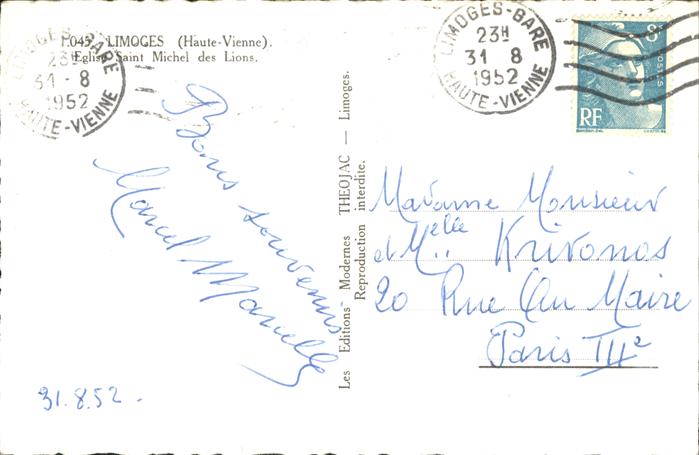 1.045. LIMOGES (Haute-Vienne).
Eglise Saint Michel des Lions.
LIMOGES-GARE
23H
31 - 8
1952
HAUTE-VIENNE
Bons souvenirs
Marcel Marcelle
31.8.52.
Les Editions Modernes THEOJAC — Limoges.
Reproduction interdite.
LIMOGES-GARE
23H
31 8
1952
HAUTE-VIENNE
8F
POSTES
RF
Madame Monsieur
et Melle Krivonos
20 Rue Au Maire
Paris III e